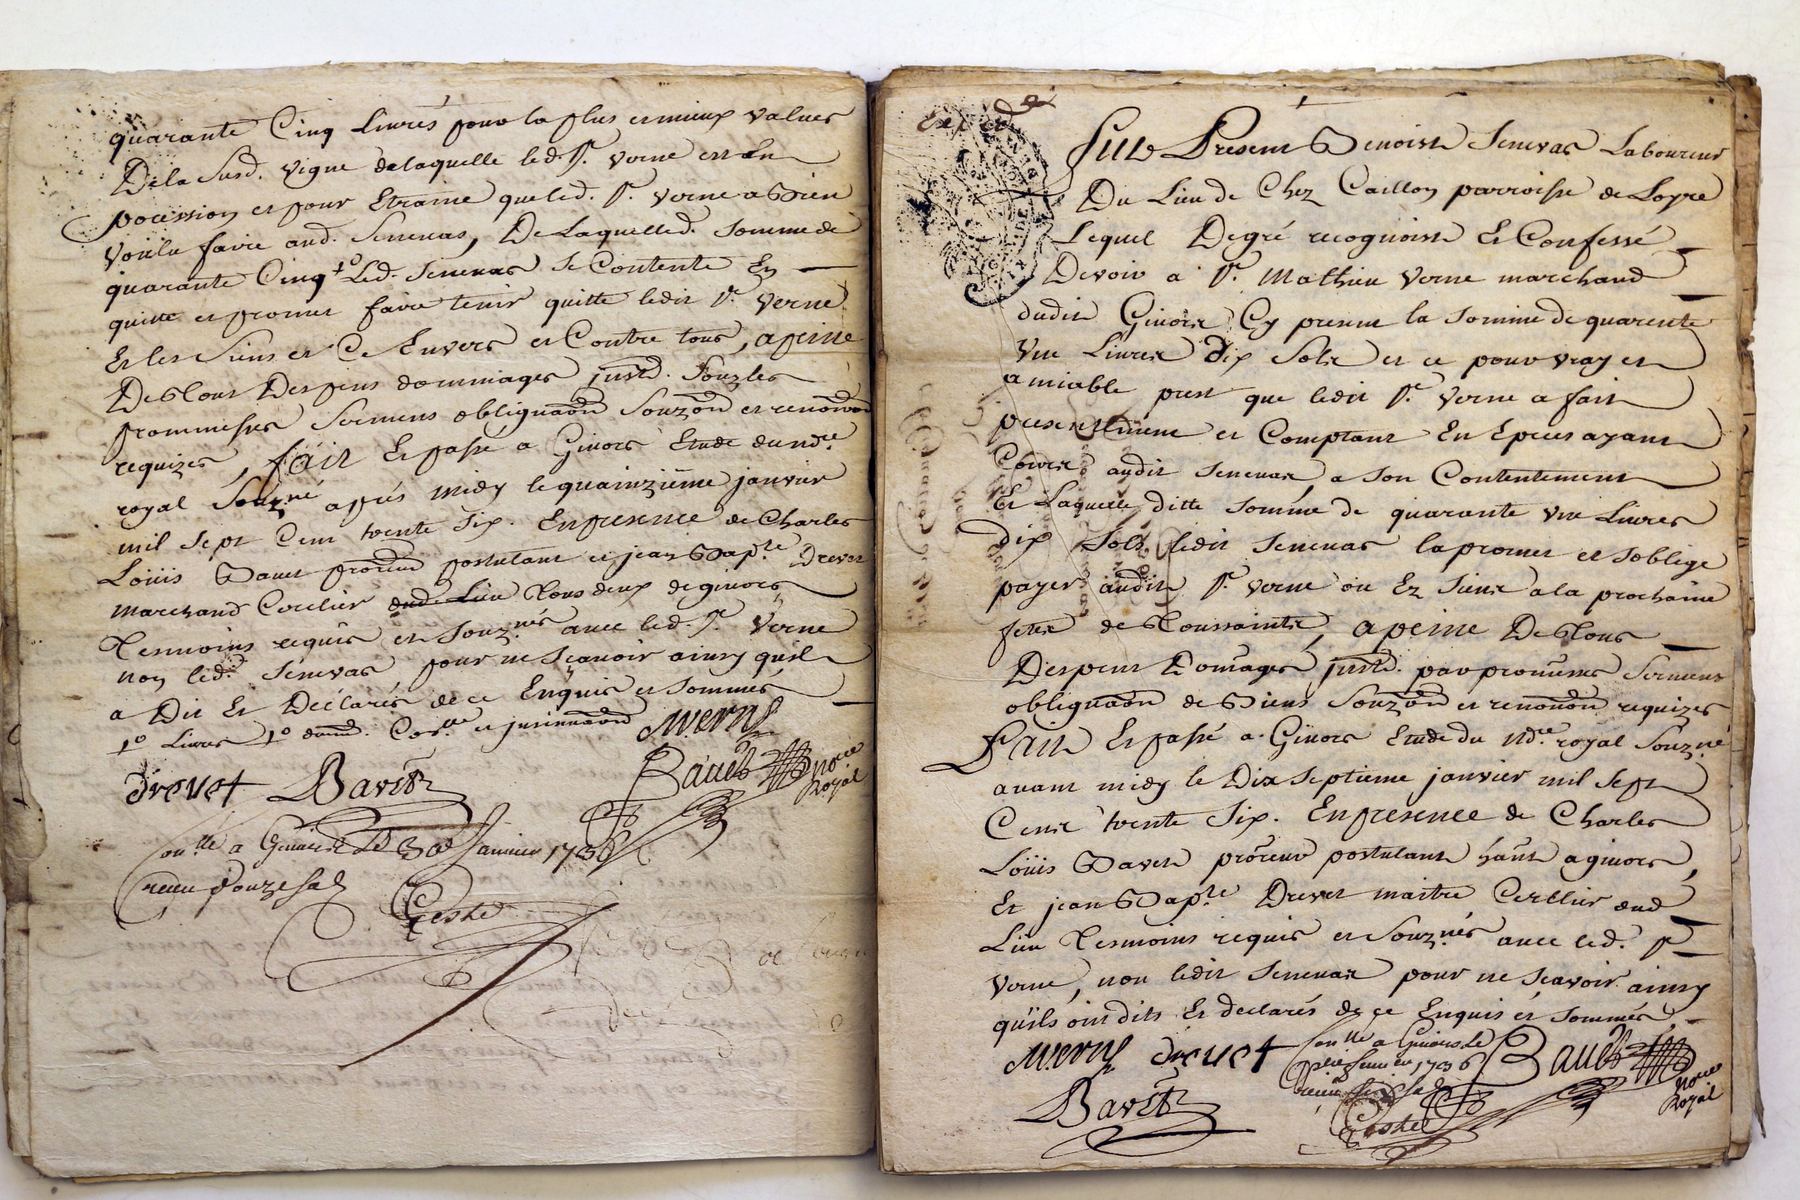 quarante Cinq Livres pour la plus et mieux values
De la Susd. vigne de laquelle led. Sr. verne est en
pocession et pour Etraine que led. Sr. verne a Bien
voulu faire aud. Senevas, De Laquelle d. somme de
quarante Cinq Led. Senevas se Contente En
quitte et promet faire tenir quitte ledit Sr. verne
Et les Siens et Ce Envers et Contre tous, a peine
De tous Despens dommages
prommesses Sermens obligaon Souzon et renonon
requizes, fait Et passé a Givors Etude du ndre
royal Souzné après midy le quainzième janvier
mil sept Cent trente Six. En presence de Charles
Loüis Bavet postulant et jean Bapte Drevet
marchand Cerclier tous deux de givors
Tesmoins requis et Souznés avec led. Sr. Verne
non led. Senevas pour ne Sçavoir ainsy qu'il
a Dit Et Déclarés de ce Enquis et sommés
Livres
M. verne
drevet Bavet
Bavet nore Royal
Conlle a Givors Le 30e Janvier 1736
receu douze sols
Teste
Exped
Fut Present Benoist Senevas Laboureur
Du Lieu de Chez Caillon parroisse de Loyre
Lequel De gré recognoist Et Confessé
Devoir a Sr. Mathieu Verne marchand
dudit Givors Cy present la somme de quarente
Une Livres dix Solz et ce pour vray et
amiable prest que ledit Sr. Verne a fait
presentement et Comptant En Epeces ayant
Cours audit Senevas, a Son Contentement
Et Laquelle ditte somme de quarante une Livres
dix Solz ledit Senevas la promet et soblige
payer audit Sr. Verne ou Ez Siens a la prochaine
feste de Toussaints, a peine De tous
Despens Domages par promesses Sermens
obligaon de Biens Souzon et renonon requizes
Fait Et passé a Givors Etude du Ndre royal Souzné
avant midy le Dix septieme janvier mil sept
Cent trente Six. En presence de Charles
Loüis Bavet procreur postulant habt a givors,
Et jean Bapte Drevet maitre Cerclier aud
Lieu Tesmoins requis et Souznés avec led. Sr
Verne, non ledit Senevas pour ne sçavoir ainsy
qu'ils ont dits Et declarés de ce Enquis et sommés
M. verne drevet
Conlle a Givors Le
janvier 1736
Bavet nore Royal
Bavet
Teste